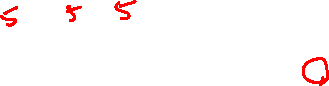 5 5 5
0